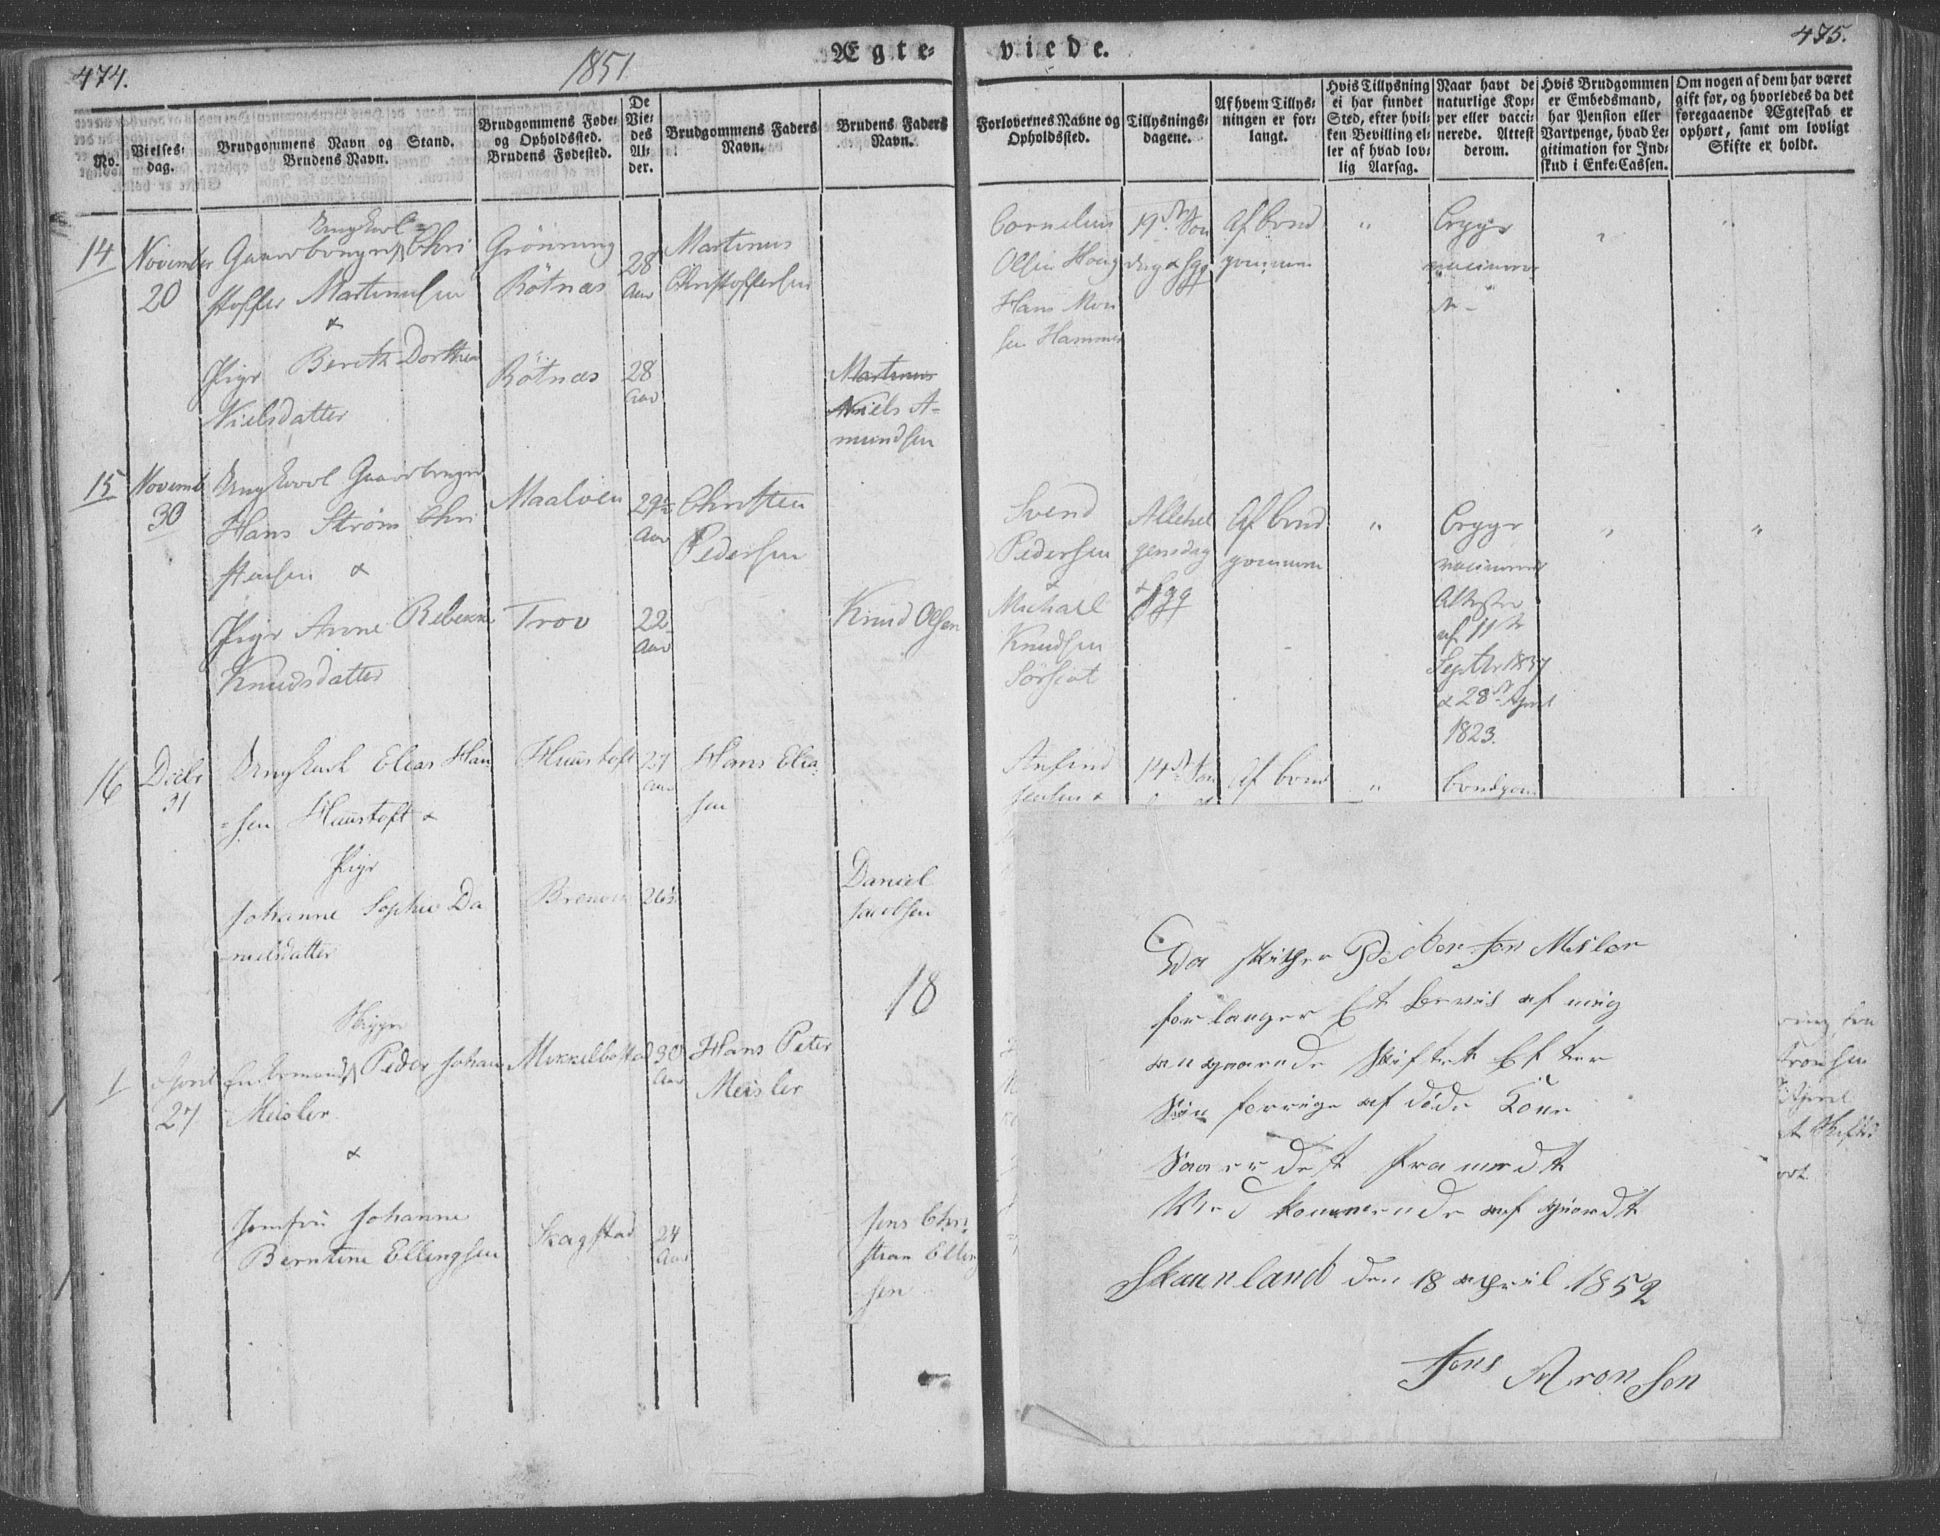 474.
1851
Ægte-
viede.
475.
No.
Vielses-
dag.
Brudgommens Navn og Stand.
Brudens Navn.
Brudgommens Føde-
og Opholdssted.
Brudens Fødested.
De
Vie-
des
Al-
der.
Brudgommens Faders
Navn.
Brudens Faders
Navn.
Forlovernes Navne og
Opholdssted.
Tillysnings-
dagene.
Af hvem Tillys-
ningen er for-
langt.
Hvis Tillysning
ei har fundet
Sted, efter hvil-
ken Bevilling el-
ler af hvad lov-
lig Aarsag.
Naar havt de
naturlige Kop-
per eller vacci-
nerede. Attest
derom.
Hvis Brudgommen
er Embedsmand,
har Pension eller
Vartpenge, hvad Le-
gitimation for Ind-
skud i Enke-Cassen.
Om nogen af dem har været
gift før, og hvorledes da det
foregaaende Ægteskab er
ophørt, samt om lovligt
Skifte er holdt.
14
November
20
Ungkarl
Gaardbruger Chri
stoffer Martinusen
&
Pige Bereth Dorthea
Nielsdatter
Grönning
Rötnæs
Rötnæs
28
Aar
28
Aar
Martinus
Christoffersen
Martinus
Niels A-
mundsen
Cornelius
Olsen Houg
Hans Mon
sen Hammer
19de Søn
dag & fgg
Af Brud
gommen
"
Begge
vaccinere
de -
"
"
15
Novemb
30
Ungkarl Gaardbruger
Hans Strøm Chri
stensen &
Pige Anne Rebekka
Knudsdatter
Maalöen
Trov
29½
Aar
22
Aar
Christen
Pedersen
Knud Olsen
Svend
Pedersen
&
Michael
Knudsen
Sörfiot
Allehel
gensdag
& fgg
Af Brud
gommen
"
Begge
vaccinerede
Attester
af 11te
Septbr 1837
& 28de April
1823.
"
"
16
Decbr
31
Ungkarl Elias Han
=sen Huustoft &
Pige
Johanne Sophie Da
nielsdatter
Huustoft
27
Aar
26½
Hans Elia
sen
Daniel
Jacobsen
Anfind
Jensen &
14de Søn
Af Brud
"
Brudgom
18
1
April
27
Skipper
Enkemand Peder Johan
Meisler
&
Jomfru Johanne
Berntine Ellingsen
Mikkelbostad
Skagstad
30
Aar
24
Aar
Hans Peter
Meisler
Jens Chri
stian Elling
sen
Da Skipper Peder Jon Meslor
forlanger Et bevis af mig
angaaende Skiftet Efter
Sin forrige afdöde Kone
Saa er det framedt
Ved kommende af gjordt
Skaanland den 18 april 1852
Jens Aronsen